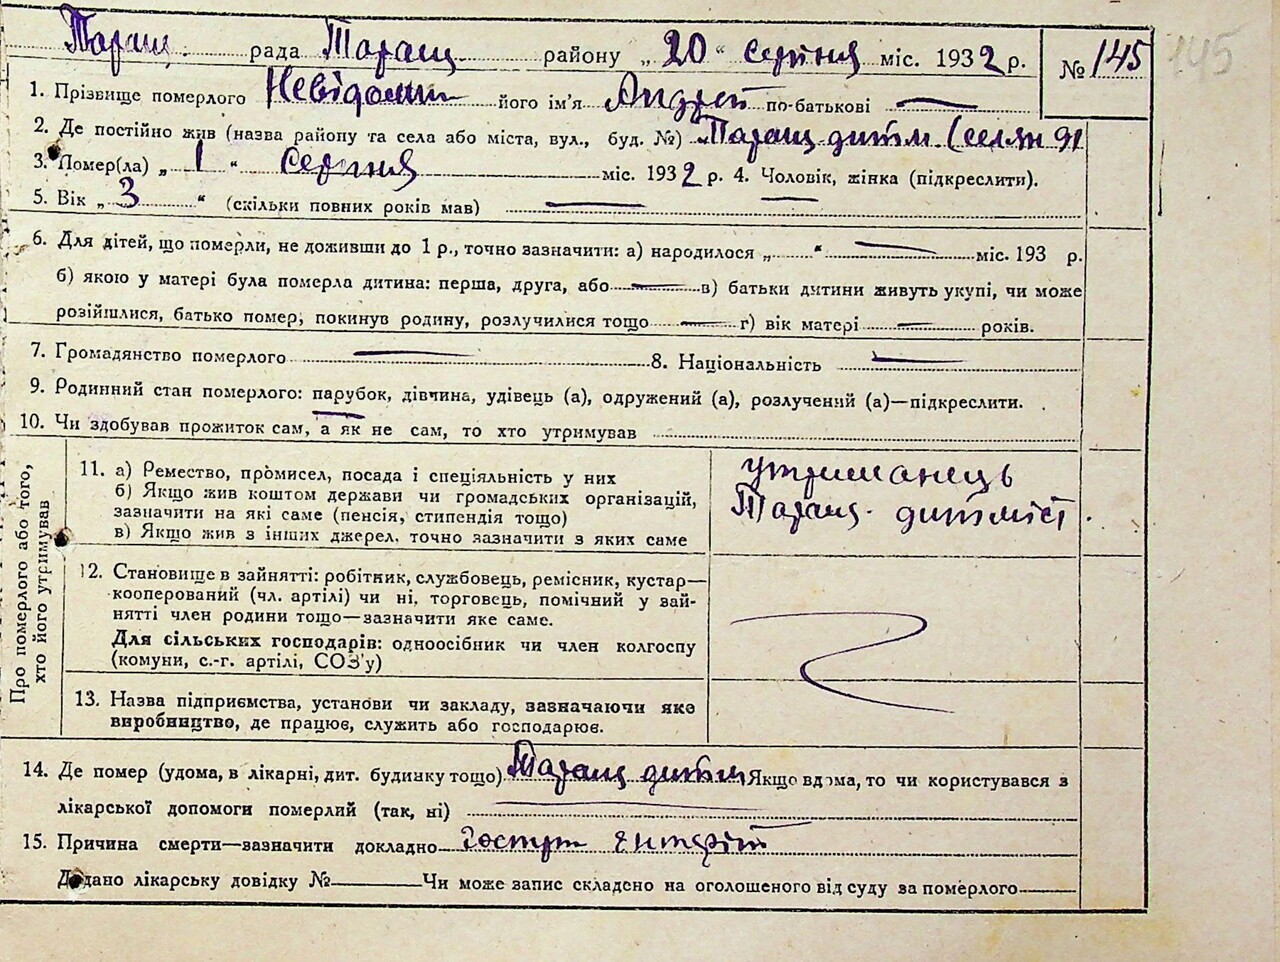 Таращ. рада Таращ. району „ 20 “ серпня міс. 1932 р. № 145 145
1. Прізвище померлого Невідомий його ім'я Андрей по-батькові —
2. Де постійно жив (назва району та села або міста, вул., буд. №) Таращ дитм (селян 91
3. Помер(ла) „ 1 “ серпня міс. 1932 р. 4. Чоловік, жінка (підкреслити).
5. Вік „ 3 “ (скільки повних років мав) —
6. Для дітей, що померли, не доживши до 1 р., точно зазначити: а) народилося „ “ — міс. 193 р.
б) якою у матері була померла дитина: перша, друга, або — в) батьки дитини живуть укупі, чи може
розійшлися, батько помер, покинув родину, розлучилися тощо — г) вік матері — років.
7. Громадянство померлого — 8. Національність —
9. Родинний стан померлого: парубок, дівчина, удівець (а), одружений (а), розлучений (а)—підкреслити.
10. Чи здобував прожиток сам, а як не сам, то хто утримував
Про померлого або того,
хто його утримував
11. а) Ремество, промисел, посада і спеціяльність у них
б) Якщо жив коштом держави чи громадських організацій,
зазначити на які саме (пенсія, стипендія тощо)
в) Якщо жив з інших джерел, точно зазначити з яких саме
утриманець
Таращ. дитміст
12. Становище в зайнятті: робітник, службовець, ремісник, кустар—
кооперований (чл. артілі) чи ні, торговець, помічний у зай-
нятті член родини тощо—зазначити яке саме.
Для сільських господарів: одноосібник чи член колгоспу
(комуни, с.-г. артілі, СОЗ'у)
13. Назва підприємства, установи чи закладу, зазначаючи яке
виробництво, де працює, служить або господарює.
14. Де помер (удома, в лікарні, дит. будинку тощо) Таращ дитм Якщо вдома, то чи користувався з
лікарської допомоги померлий (так, ні) —
15. Причина смерти—зазначити докладно Гострий Ентеріт
Додано лікарську довідку № — Чи може запис складено на оголошеного від суду за померлого —